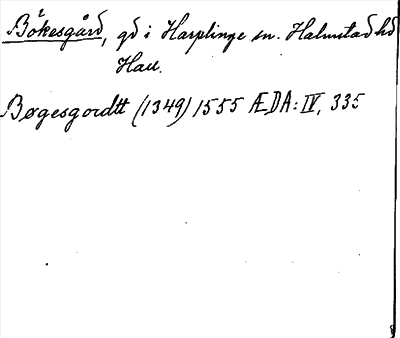 Bökesgård, gd i Harplinge sn. Halmstad hd
Hall.
Bøgesgordtt (1349) 1555 ÆDA: IV, 335